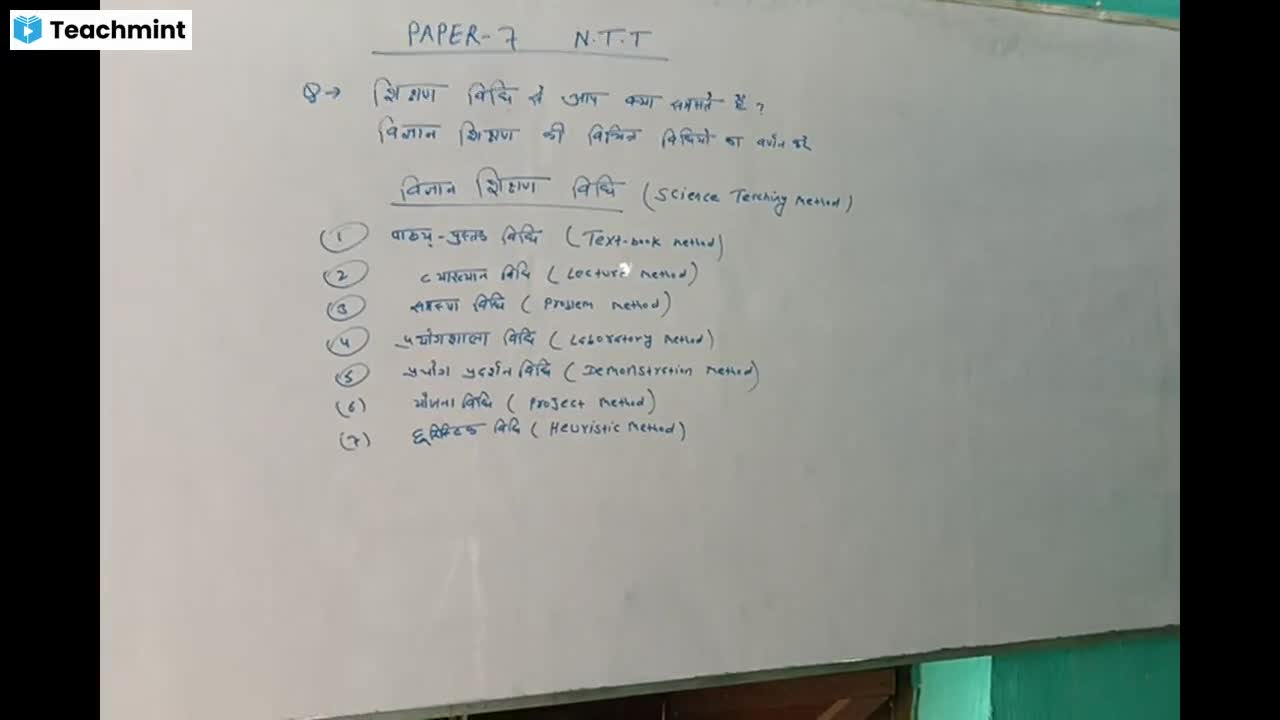 Teachmint
PAPER-7 N.T.T
Q→ शिक्षण विधि से आप क्या समझते हैं ?
विज्ञान शिक्षण की विभिन्न विधियों का वर्णन करें
विज्ञान शिक्षण विधि (Science Teaching Method)
(1) पाठ्य-पुस्तक विधि (Text-book Method)
(2) व्याख्यान विधि (Lecture Method)
(3) समस्या विधि (Problem Method)
(4) प्रयोगशाला विधि (Laboratory Method)
(5) प्रयोग प्रदर्शन विधि (Demonstration Method)
(6) योजना विधि (Project Method)
(7) ह्यूरिस्टिक विधि (Heuristic Method)